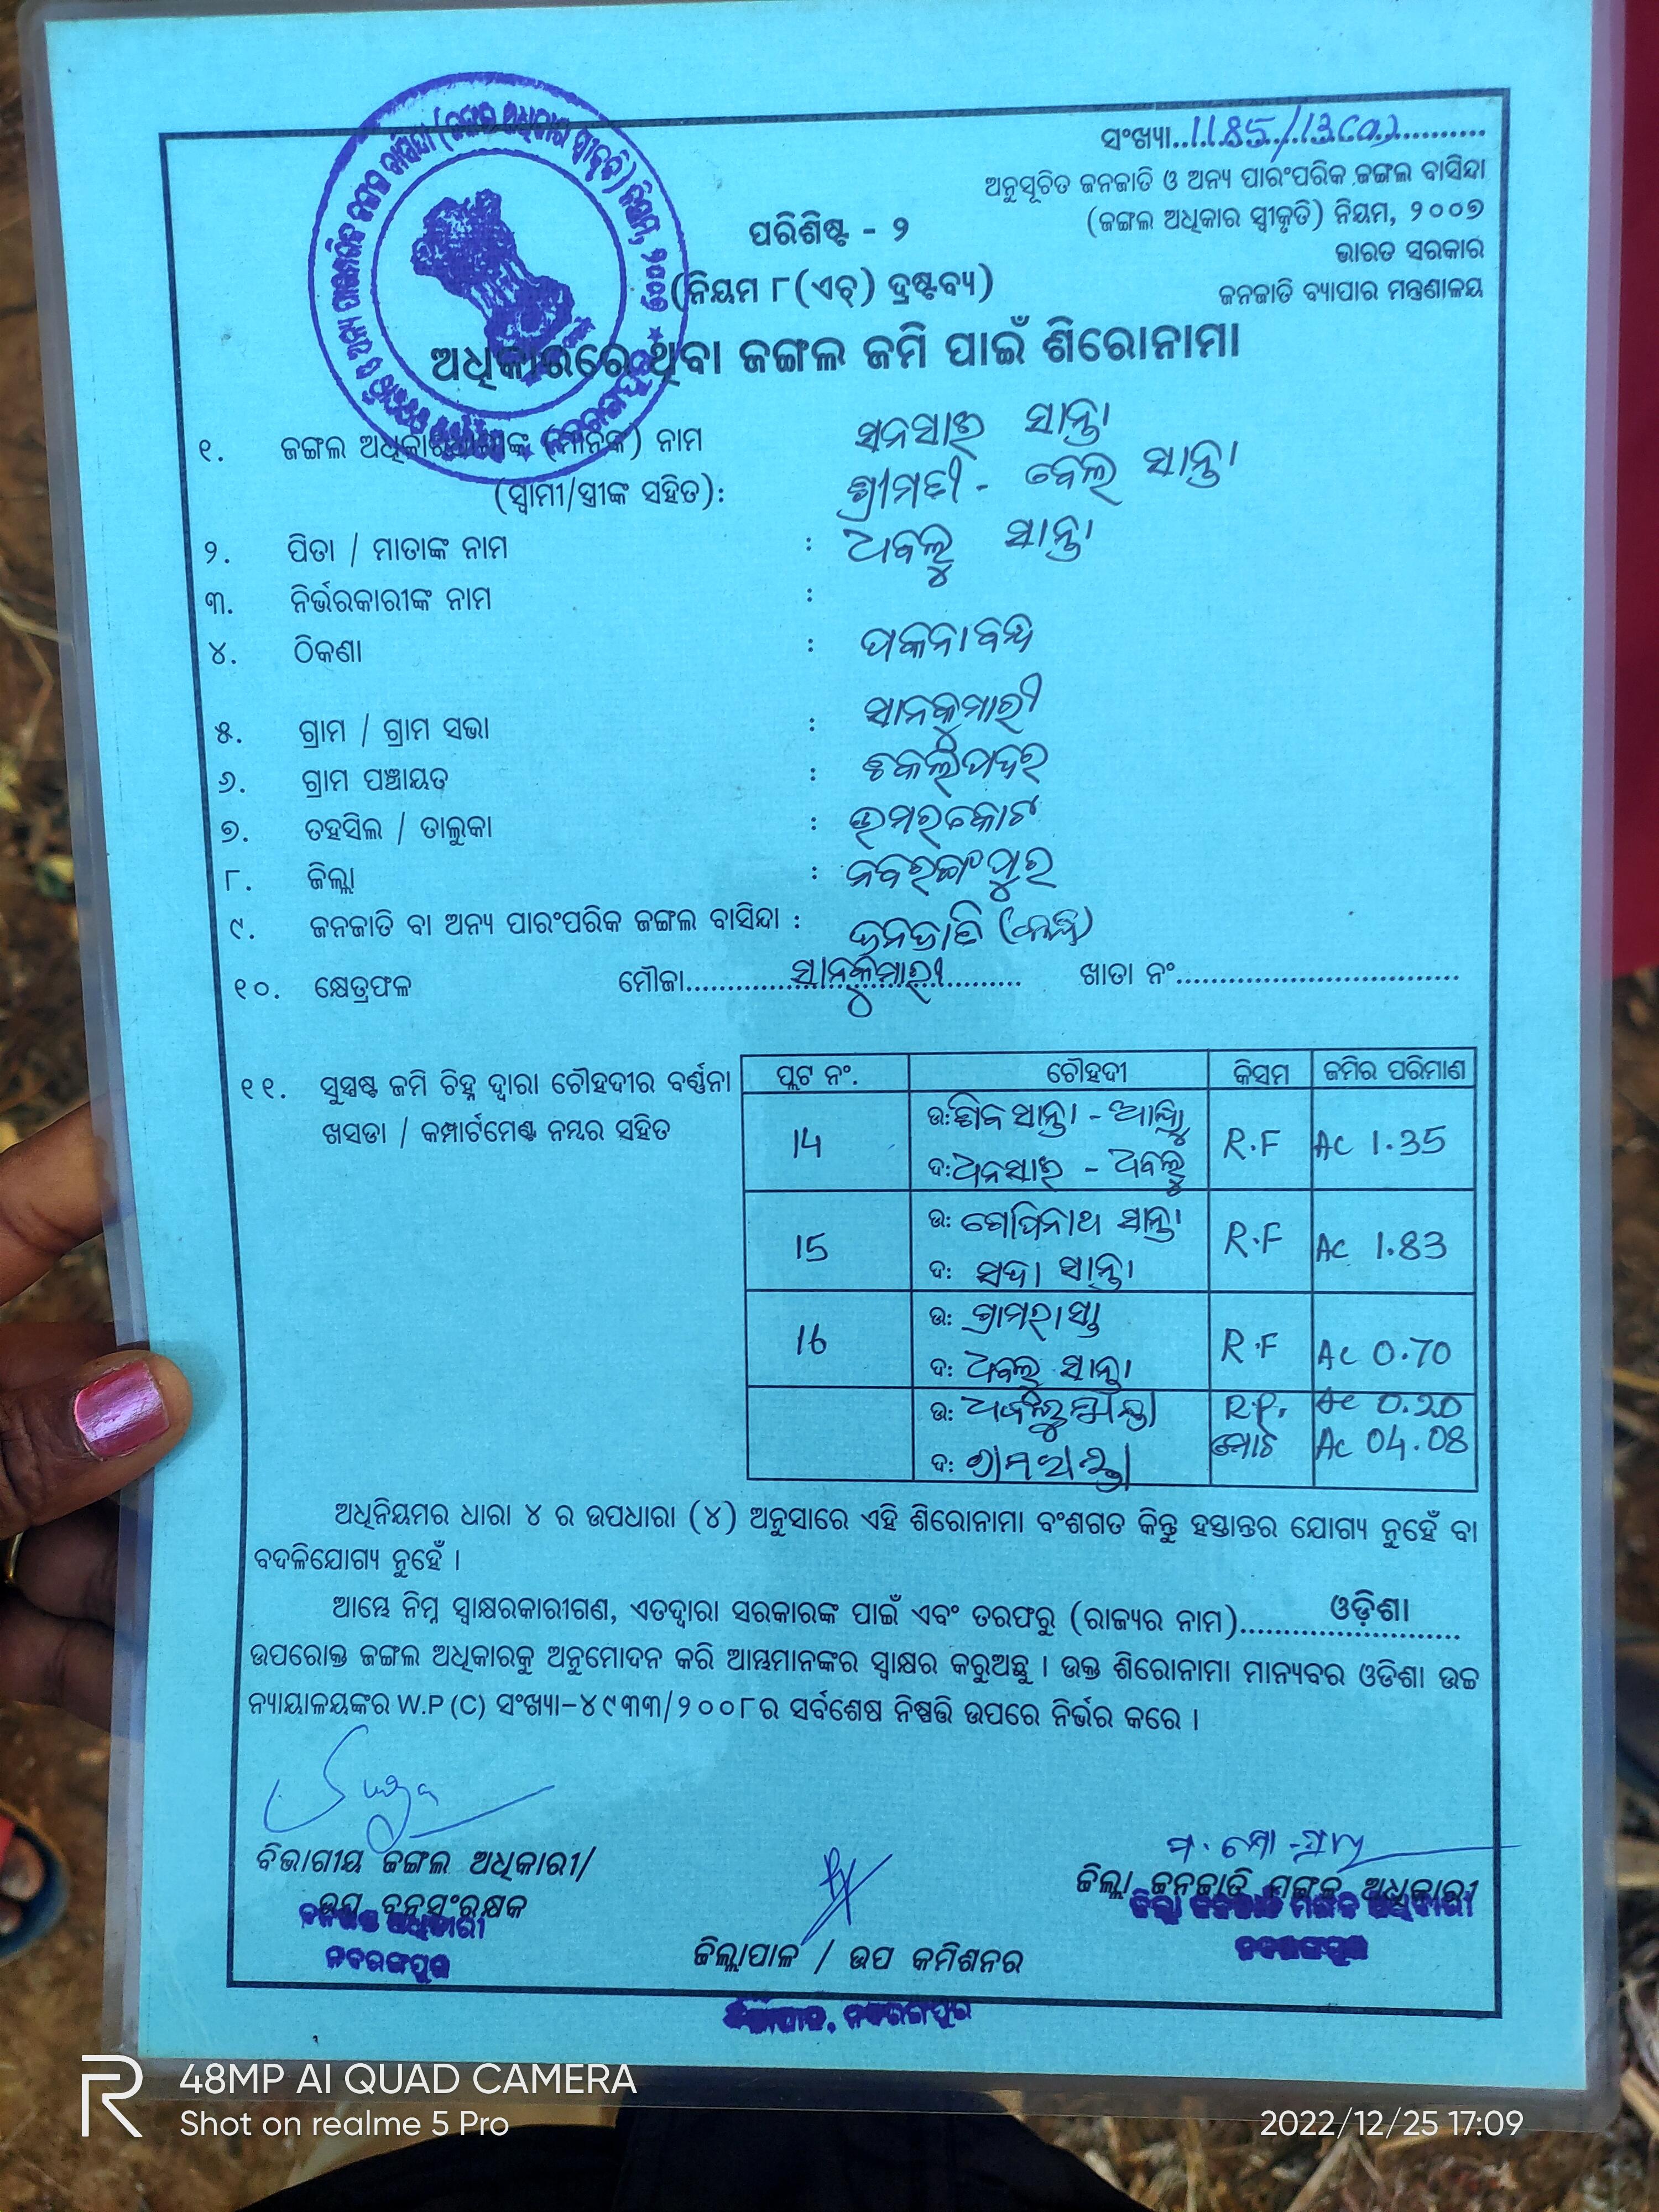 ସଂଖ୍ୟା..1185/13(a)..........
ଅନୁସୂଚିତ ଜନଜାତି ଓ ଅନ୍ୟ ପାରଂପରିକ ଜଙ୍ଗଲ ବାସିନ୍ଦା
(ଜଙ୍ଗଲ ଅଧିକାର ସ୍ୱୀକୃତି) ନିୟମ, ୨୦୦୭
ଭାରତ ସରକାର
ଜନଜାତି ବ୍ୟାପାର ମନ୍ତ୍ରଣାଳୟ
ପରିଶିଷ୍ଟ - ୨
(ନିୟମ ୮(ଏଚ୍) ଦ୍ରଷ୍ଟବ୍ୟ)
ଅଧିକାରରେ ଥିବା ଜଙ୍ଗଲ ଜମି ପାଇଁ ଶିରୋନାମା
୧. ଜଙ୍ଗଲ ନାମ ସାନ୍ତା
(ସ୍ୱାମୀ/ସ୍ତ୍ରୀଙ୍କ ସହିତ): ଶ୍ରୀମତୀ - ସାନ୍ତା
୨. ପିତା / ମାତାଙ୍କ ନାମ : ଧବଲୁ ସାନ୍ତା
୩. ନିର୍ଭରକାରୀଙ୍କ ନାମ :
୪. ଠିକଣା : ପକନାବନ୍ଧ
୫. ଗ୍ରାମ / ଗ୍ରାମ ସଭା : ସାନକୁମାରୀ
୬. ଗ୍ରାମ ପଞ୍ଚାୟତ :
୭. ତହସିଲ / ତାଲୁକା : ଉମରକୋଟ
୮. ଜିଲ୍ଲା : ନବରଙ୍ଗପୁର
୯. ଜନଜାତି ବା ଅନ୍ୟ ପାରଂପରିକ ଜଙ୍ଗଲ ବାସିନ୍ଦା : ଜନଜାତି
୧୦. କ୍ଷେତ୍ରଫଳ ମୌଜା..........ସାନକୁମାରୀ.......... ଖାତା ନଂ..........
୧୧. ସୁସ୍ପଷ୍ଟ ଜମି ଚିହ୍ନ ଦ୍ୱାରା ଚୌହଦୀର ବର୍ଣ୍ଣନା
ଖସଡା / କମ୍ପାର୍ଟମେଣ୍ଟ ନମ୍ବର ସହିତ
ପ୍ଲଟ ନଂ. ଚୌହଦୀ କିସମ ଜମିର ପରିମାଣ
14 ଉ: ଶିବ ସାନ୍ତା - R.F Ac 1.35
ଦ: ଧନସାଇ - ଧବଲୁ
15 ଉ: ଗୋପିନାଥ ସାନ୍ତା R.F Ac 1.83
ଦ: ସଦା ସାନ୍ତା
16 ଉ: ଗ୍ରାମରାସ୍ତା R.F Ac 0.70
ଦ: ଧବଲୁ ସାନ୍ତା
ଉ: R.P. Ac 0.20
ଦ: ମୋଟ Ac 04.08
ଅଧିନିୟମର ଧାରା ୪ ର ଉପଧାରା (୪) ଅନୁସାରେ ଏହି ଶିରୋନାମା ବଂଶଗତ କିନ୍ତୁ ହସ୍ତାନ୍ତର ଯୋଗ୍ୟ ନୁହେଁ ବା
ବଦଳିଯୋଗ୍ୟ ନୁହେଁ ।
ଆମ୍ଭେ ନିମ୍ନ ସ୍ୱାକ୍ଷରକାରୀଗଣ, ଏତଦ୍ଵାରା ସରକାରଙ୍କ ପାଇଁ ଏବଂ ତରଫରୁ (ରାଜ୍ୟର ନାମ)..........ଓଡ଼ିଶା..........
ଉପରୋକ୍ତ ଜଙ୍ଗଲ ଅଧିକାରକୁ ଅନୁମୋଦନ କରି ଆମ୍ଭମାନଙ୍କର ସ୍ୱାକ୍ଷର କରୁଅଛୁ । ଉକ୍ତ ଶିରୋନାମା ମାନ୍ୟବର ଓଡିଶା ଉଚ୍ଚ
ନ୍ୟାୟାଳୟଙ୍କର W.P (C) ସଂଖ୍ୟା-୪୯୩୩/୨୦୦୮ର ସର୍ବଶେଷ ନିଷ୍ପତ୍ତି ଉପରେ ନିର୍ଭର କରେ ।
ବିଭାଗୀୟ ଜଙ୍ଗଲ ଅଧିକାରୀ/
ଉପ ବନସଂରକ୍ଷକ
ନବରଙ୍ଗପୁର
ଜିଲ୍ଲାପାଳ / ଉପ କମିଶନର
ଜିଲ୍ଲାପାଳ, ନବରଙ୍ଗପୁର
ଜିଲ୍ଲା ଜନଜାତି ମଙ୍ଗଳ ଅଧିକାରୀ
ଜିଲ୍ଲା ଜନଜାତି ମଙ୍ଗଳ ଅଧିକାରୀ
ନବରଙ୍ଗପୁର
48MP AI QUAD CAMERA
Shot on realme 5 Pro
2022/12/25 17:09